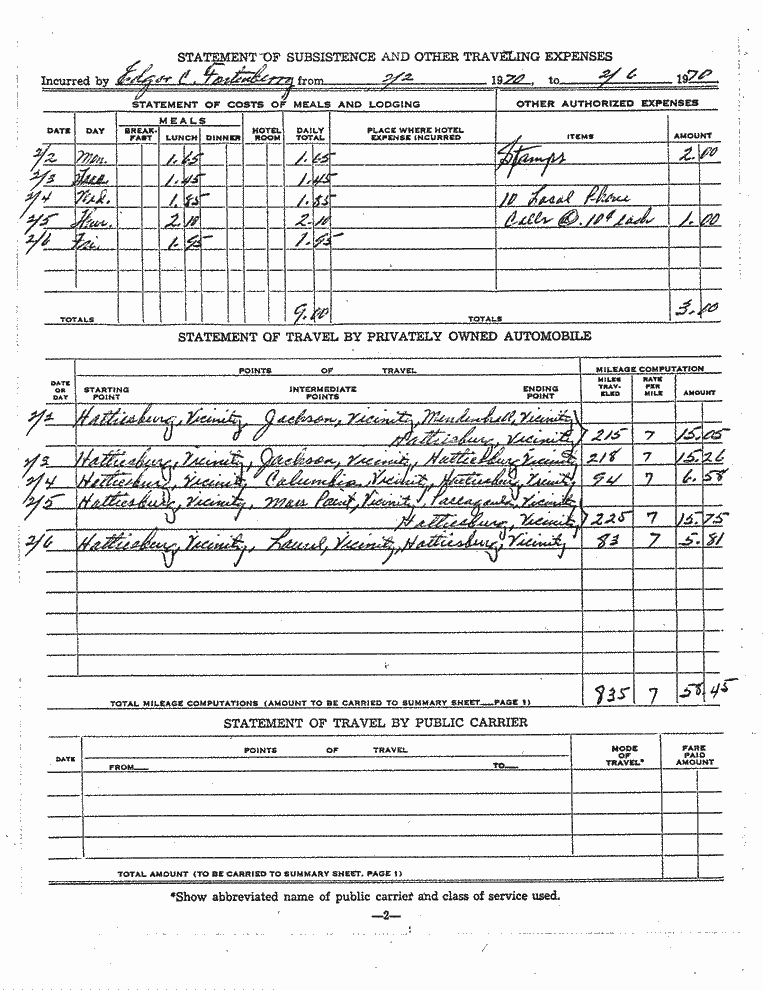 STATEMENT OF SUBSISTENCE AND OTHER TRAVELING EXPENSES
Incurred by Edgar C. Fortenberry from 2/2 1970, to 2/6 1970
STATEMENT OF COSTS OF MEALS AND LODGING OTHER AUTHORIZED EXPENSES
MEALS
DATE DAY BREAK-FAST LUNCH DINNER HOTEL ROOM DAILY TOTAL PLACE WHERE HOTEL EXPENSE INCURRED ITEMS AMOUNT
2/2 Mon. 1.65 1.65 Stamps 2.00
2/3 1.45 1.45
2/4 Wed. 1.85 1.85 10 Local Phone
2/5 Thur. 2.10 2.10 Calls @ .10¢ each 1.00
2/6 Fri. 1.95 1.95
TOTALS 9.00 TOTALS 3.00
STATEMENT OF TRAVEL BY PRIVATELY OWNED AUTOMOBILE
POINTS OF TRAVEL MILEAGE COMPUTATION
DATE OR DAY STARTING POINT INTERMEDIATE POINTS ENDING POINT MILES TRAV-ELED RATE PER MILE AMOUNT
2/2 Hattiesburg, Vicinity, Jackson, Vicinity, Mendenhall, Vicinity,
Hattiesburg, Vicinity 215 7 15.05
2/3 Hattiesburg, Vicinity, Jackson, Vicinity, Hattiesburg, Vicinity 218 7 15.26
2/4 Hattiesburg, Vicinity, Columbia, Vicinity, Hattiesburg, Vicinity 94 7 6.58
2/5 Hattiesburg, Vicinity, Moss Point, Vicinity, Pascagoula, Vicinity
Hattiesburg, Vicinity 225 7 15.75
2/6 Hattiesburg, Vicinity, Laurel, Vicinity, Hattiesburg, Vicinity 83 7 5.81
TOTAL MILEAGE COMPUTATIONS (AMOUNT TO BE CARRIED TO SUMMARY SHEET PAGE 1) 835 7 58.45
STATEMENT OF TRAVEL BY PUBLIC CARRIER
DATE POINTS OF TRAVEL MODE OF TRAVEL* FARE PAID AMOUNT
FROM TO
TOTAL AMOUNT (TO BE CARRIED TO SUMMARY SHEET, PAGE 1)
*Show abbreviated name of public carrier and class of service used.
—2—